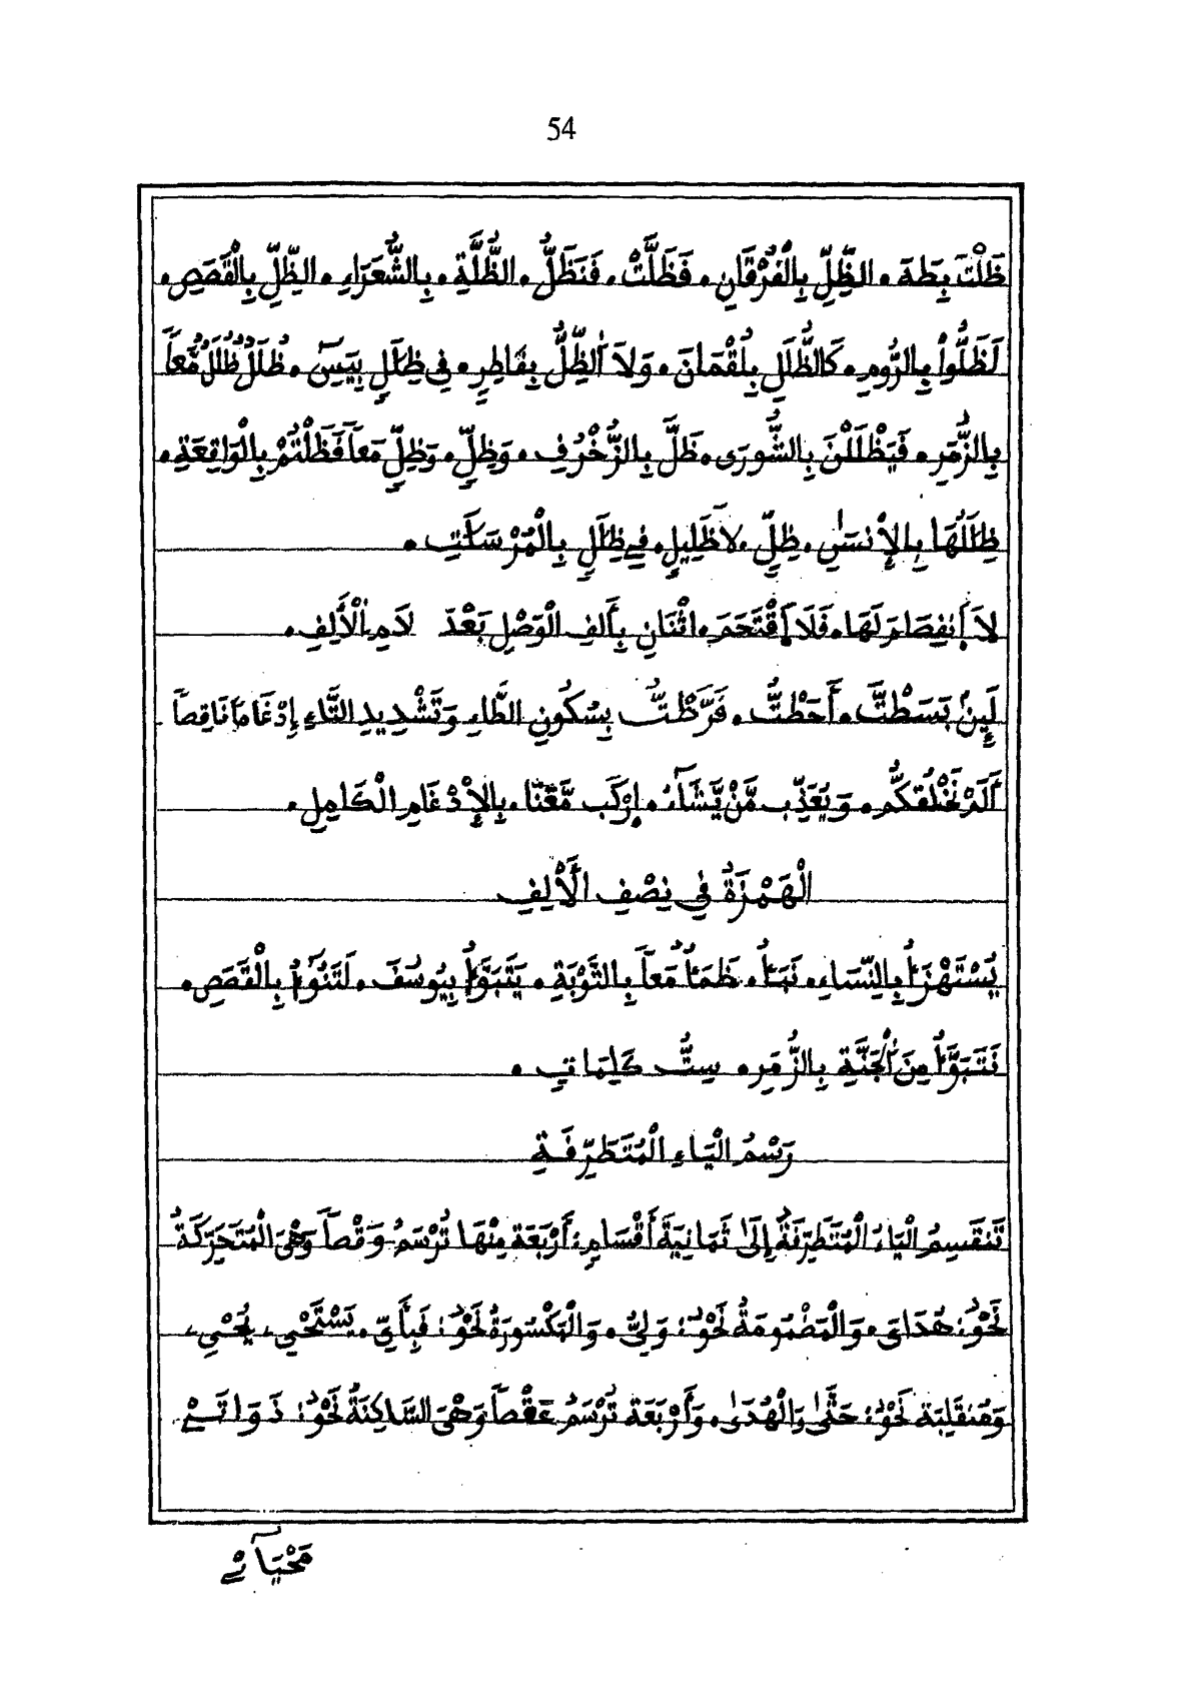 54
ظَلْتَ بِطَهَ . الظِّلِّ بِالْفُرْقَانِ . فَظَلَّتْ . فَنَظَلُّ . الظُّلَّةِ . بِالشُّعَرَاءِ . الظِّلِّ بِالْقَصَصِ .
لَظَلُّواْ بِالرُّومِ . كَالظُّلَلِ بِلُقْمَانَ . وَلاَ اَلظِّلُّ بِفَاطِرٍ . فِي ظِلَلٍ بِيَسِ . ظُلَلٌ ظُلَلٌ مَّعاً
بِالزُّمَرِ . فَيَظْلَلْنَ بِالشُّورَى . ظَلَّ بِالزُّخْرُفِ . وَظِلٍّ . وَظِلٍّ مَعاً فَظَلْتُمْ بِالْوَاقِعَةِ .
ظِلَلُهَا بِالإِنسَانِ . ظِلٍّ . لاَ ظَلِيلٍ . فِي ظِلَلٍ بِالْمُرْسَلَتِ .
لاَ اَنفِصَامَ لَهَا . فَلاَ اَقْتَحَمَ . اثْنَانِ بِأَلِفِ الْوَصْلِ بَعْدَ لاَمِ الْأَلِفِ .
لَئِنْ بَسَطْتَّ . أَحَطْتُّ . فَرَّطْتُّ بِسُكُونِ الطَّاءِ وَتَشْدِيدِ التَّاءِ إِدْغَاماً نَاقِصاً
أَلَمْ نَخْلُقكُّم . وَيُعَذِّب مَّنْ يَّشَآءُ . اِرْكَب مَّعَنَا . بِالإِدْغَامِ الْكَامِلِ .
الْهَمْزَةُ فِي نِصْفِ الْأَلِفِ
يُسْتَهْزَأُ بِالنِّسَاءِ . نَبَأُ . ظَمَأٌ مَعاً بِالتَّوْبَةِ . يَتَبَوَّأُ بِيُوسُفَ . لَتَنُوأُ بِالْقَصَصِ .
نَتَبَوَّأُ مِنَ اَلْجَنَّةِ بِالزُّمَرِ . سِتُّ كَلِمَاتٍ .
رَسْمُ الْيَاءِ الْمُتَطَرِّفَةِ
تَنقَسِمُ الْيَاءُ الْمُتَطَرِّفَةُ إِلَى ثَمَانِيَةِ أَقْسَامٍ : أَرْبَعَة مِنْهَا تُرْسَمُ وَقْصاً وَهْيَ الْمُتَحَرِّكَةُ
نَحْوُ : هُدَايَ . وَالْمَضْمُومَةُ نَحْوُ : وَلِيُّ . وَالْمَكْسُورَةُ نَحْوُ : فَبِأَيِّ . يَسْتَحْيِ ، يُحْيِ ،
وَمُنقَلِبَة نَحْوُ : حَتَّى وَالْهُدَى . وَأَرْبَعَة تُرْسَمُ عَقْصاً وَهْيَ السَّاكِنَةُ نَحْوُ : ذَوَاتَيْ
مَحْيَآيْ